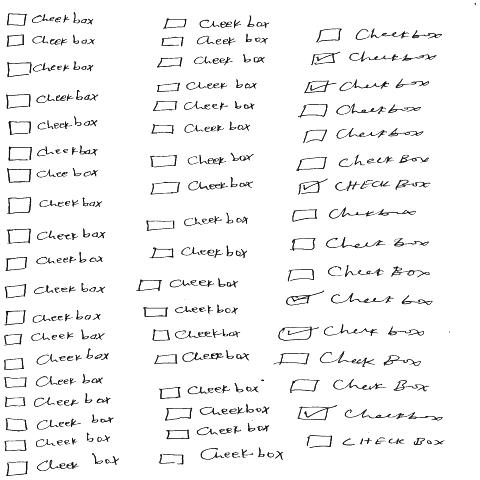 Cheekbox
Cheekbox
Cheekbox
Cheekbox
Cheekbox
Cheekbox
Cheebox
Cheekbox
Cheekbox
Cheekbox
Cheekbox
Cheekbox
Cheekbox
Cheekbox
Cheek box
Cheek box
Cheek box
Cheek box
Cheek box
Cheek box
Cheek box
Cheek box
Cheek box
Cheek box
Cheek box
Cheek box
Cheekbox
Cheek box
Cheekbox
Cheekbox
Cheekbox
Cheekbox
Cheekbox
Cheekbox
Cheekbox
Cheek box
Cheek box
Checkbox
Checkbox
Check box
Checkbox
Checkbox
Check Box
CHECK BOX
Checkbox
Check box
Check Box
Check box
Check box
Check Box
Check Box
Checkbox
CHECK BOX